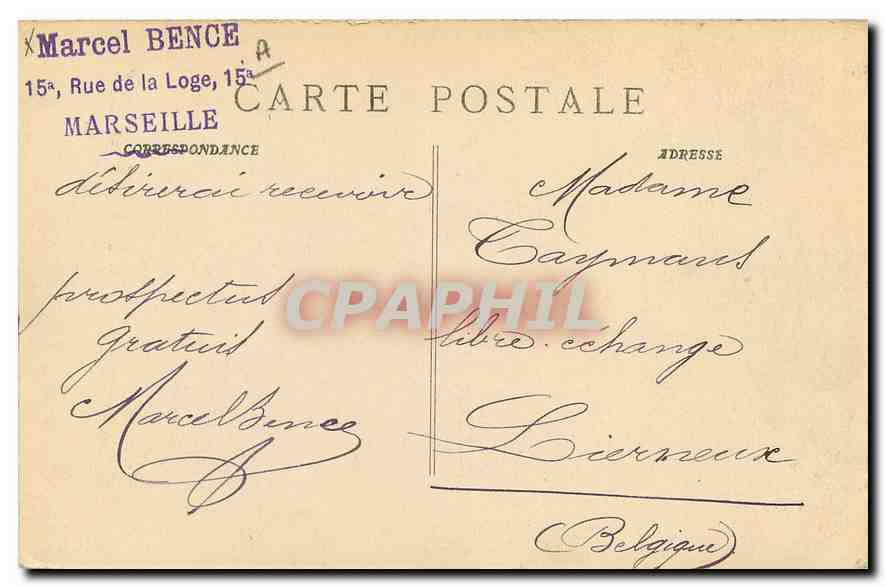 Marcel BENCE
15ª, Rue de la Loge, 15ª
MARSEILLE
A
CARTE POSTALE
CORRESPONDANCE
désirerai recevoir
prospectus
gratuis
Marcel Bence
ADRESSE
Madame
Taymans
libre-échange
Lierneux
(Belgique)
CPAPHIL